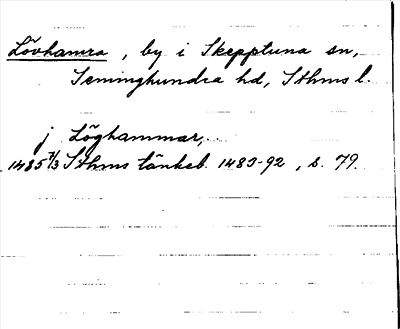 Lövhamra, by i Skepptuna sn,
Seminghundra hd, Sthms l.
j Löghammar,
1485 7/3 Sthms tänkeb. 1483-92, s. 79.